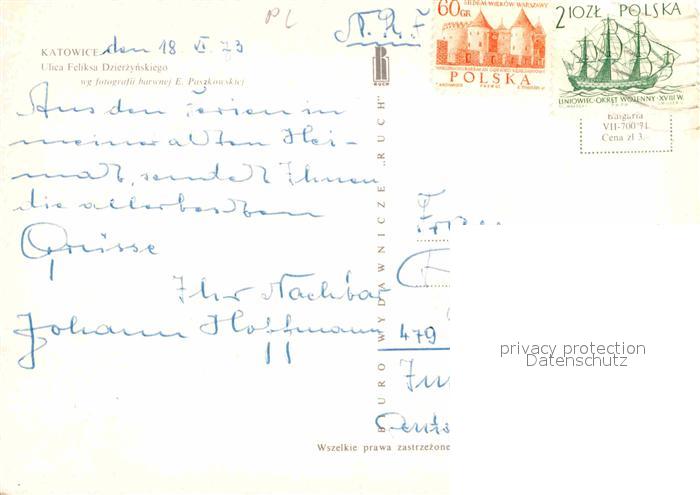 PL
N.R.F
KATOWICE den 18 VI. 73
Ulica Feliksa Dzierżyńskiego
wg fotografii barwnej E. Paszkowskiej
Aus den Ferien in
meiner alten Hei-
mat, sendet Ihnen
die allerbesten
Grüsse
Ihr Nachbar
Johann Hoffmann
RUCH
BIURO WYDAWNICZE „RUCH"
60GR
SIEDEM WIEKÓW WARSZAWY
POLSKA
2,10ZŁ POLSKA
LINIOWIEC-OKRĘT WOJENNY-XVIII W.
Bułgaria
VII-700 71
Cena zł 3,-
479
privacy protection
Datenschutz
Wszelkie prawa zastrzeżone